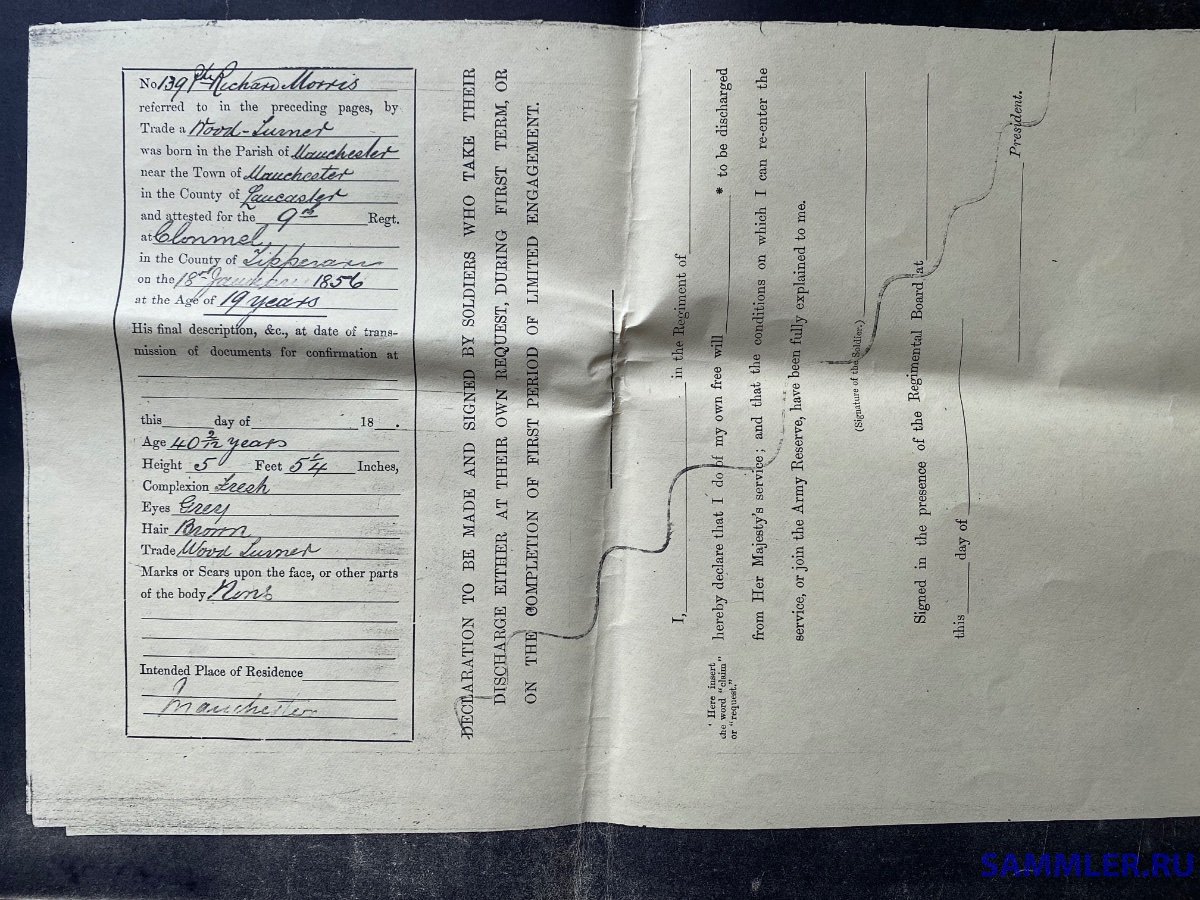 No 139 Pte Richard Morris
referred to in the preceding pages, by
Trade a Wood-Turner
was born in the Parish of Manchester
near the Town of Manchester
in the County of Lancaster
and attested for the 9th Regt.
at Clonmel
in the County of Tipperary
on the 18th January 1856
at the Age of 19 years
His final description, &c., at date of trans-
mission of documents for confirmation at
this day of 18 .
Age 40 2/12 years
Height 5 Feet 5 1/4 Inches,
Complexion Fresh
Eyes Grey
Hair Brown
Trade Wood Turner
Marks or Scars upon the face, or other parts
of the body None
Intended Place of Residence
Manchester
DECLARATION TO BE MADE AND SIGNED BY SOLDIERS WHO TAKE THEIR
DISCHARGE EITHER AT THEIR OWN REQUEST, DURING FIRST TERM, OR
ON THE COMPLETION OF FIRST PERIOD OF LIMITED ENGAGEMENT.
I, in the Regiment of
hereby declare that I do of my own free will * to be discharged
from Her Majesty's service; and that the conditions on which I can re-enter the
service, or join the Army Reserve, have been fully explained to me.
* Here insert
the word "claim"
or "request."
(Signature of the Soldier.)
Signed in the presence of the Regimental Board at
this day of
President.
SAMMLER.RU